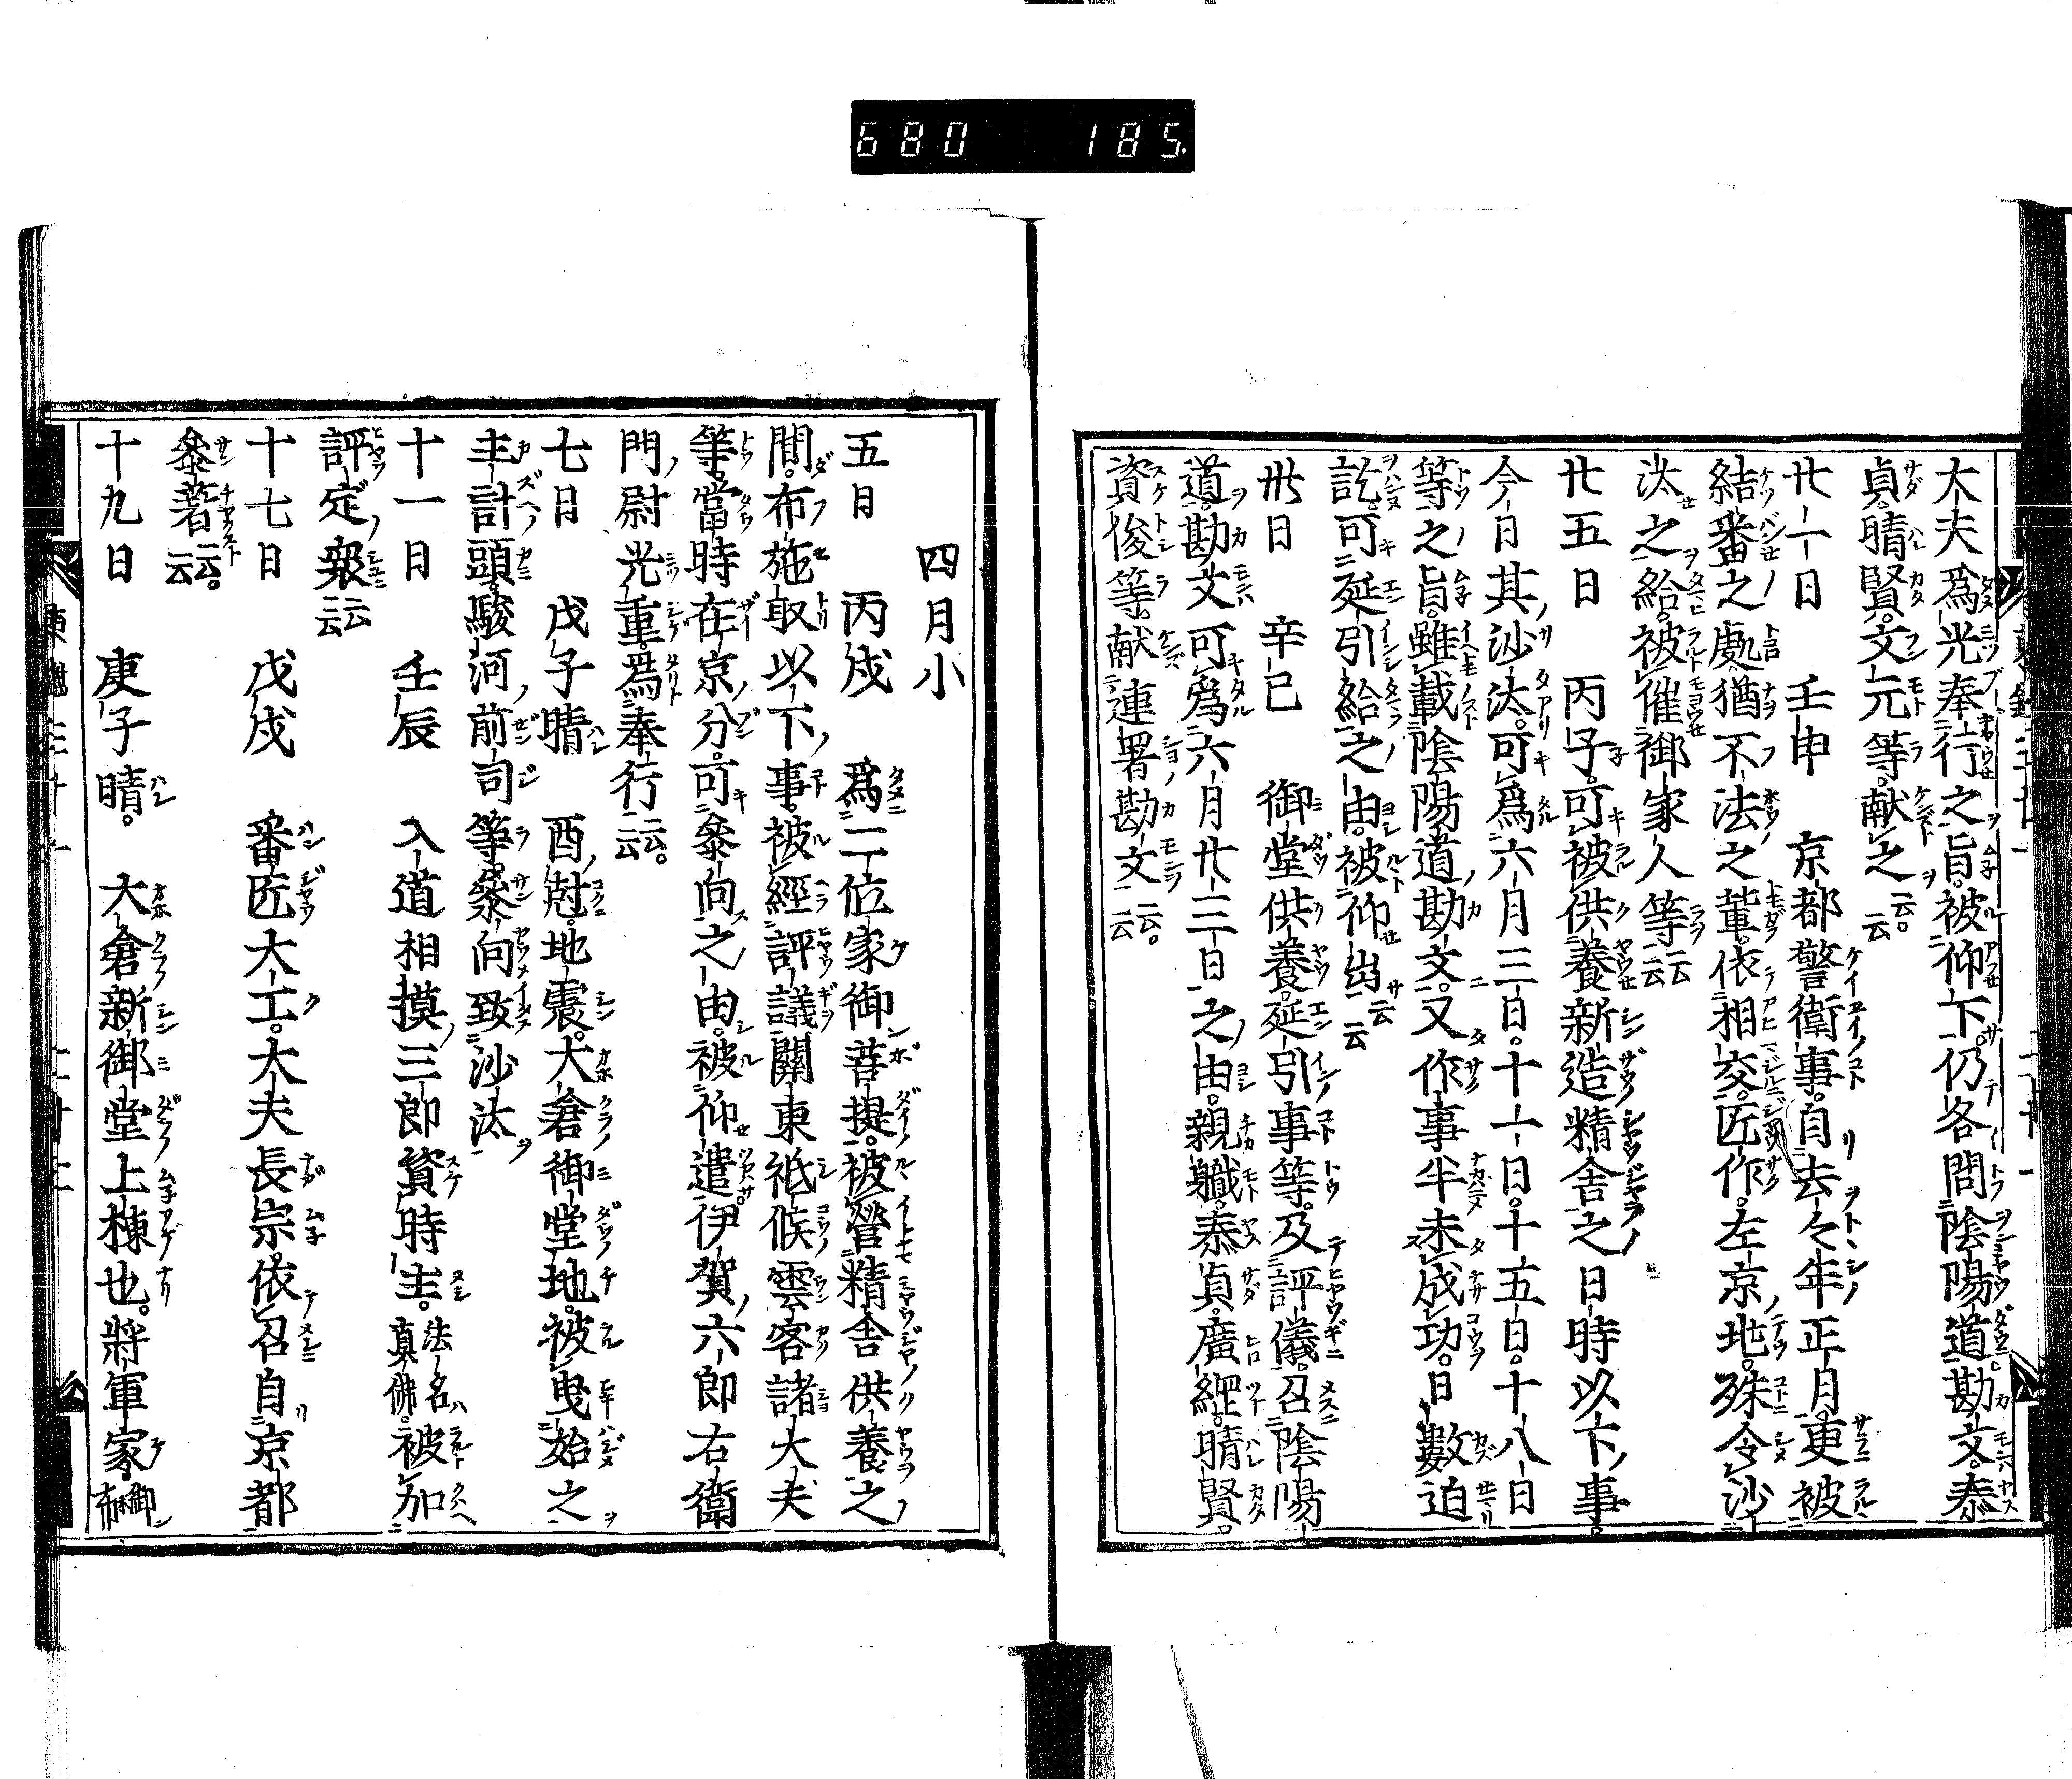 680 185
大夫爲光奉行之旨。被仰下。仍各問陰陽道勘文。泰
貞。晴賢。文元等。献之云云。
廿一日 壬申 京都警衛事。自去々年正月。更被
結番之處。猶不法之輩。依相交。匠作。左京地。殊令沙
汰之給。被催御家人等云云
廿五日 丙子。可被供養新造精舎之日時以下事。
今日其沙汰。可爲六月三日。十一日。十五日。十八日
等之旨。雖載陰陽道勘文。又作事半未成功。日數迫
訖。可延引給之由。被仰出云云
卅日 辛巳 御堂供養。延引事等。及評儀。召陰陽
道。勘文可爲六月廿三日之由。親職。泰貞。廣經。晴賢。
資俊等。献連署勘文云云。
四月小
五日 丙戌 爲二位家御菩提。被營精舎供養之
間。布施取以下事。被經評議。關東祗候雲客諸大夫
等。當時在京分。可參向之由。被仰遣伊賀六郎右衛
門尉光重。爲奉行云云。
七日 戊子晴 酉尅。地震。大倉御堂地。被曳始之
主計頭。駿河前司等。參向致沙汰
十一日 壬辰 入道相摸三郎資時主。法名真佛。被加
評定衆云云
十七日 戊戌 番匠大工。大夫長宗。依召自京都
參著云云。
十九日 庚子晴。 大倉新御堂上棟也。將軍家。御